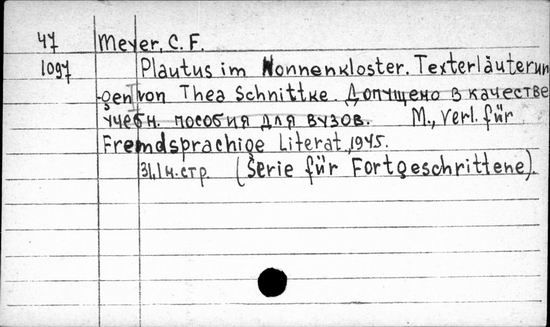 47 Meyer, C. F.
1097 Plautus im Nonnenkloster. Texterläuterun
gen von Thea Schnittke. Допущено в качестве
учебн. пособия для вузов. М., Verl. für
Fremdsprachige Literat, 1945.
31,1 н. стр. (Serie für Fortgeschrittene).